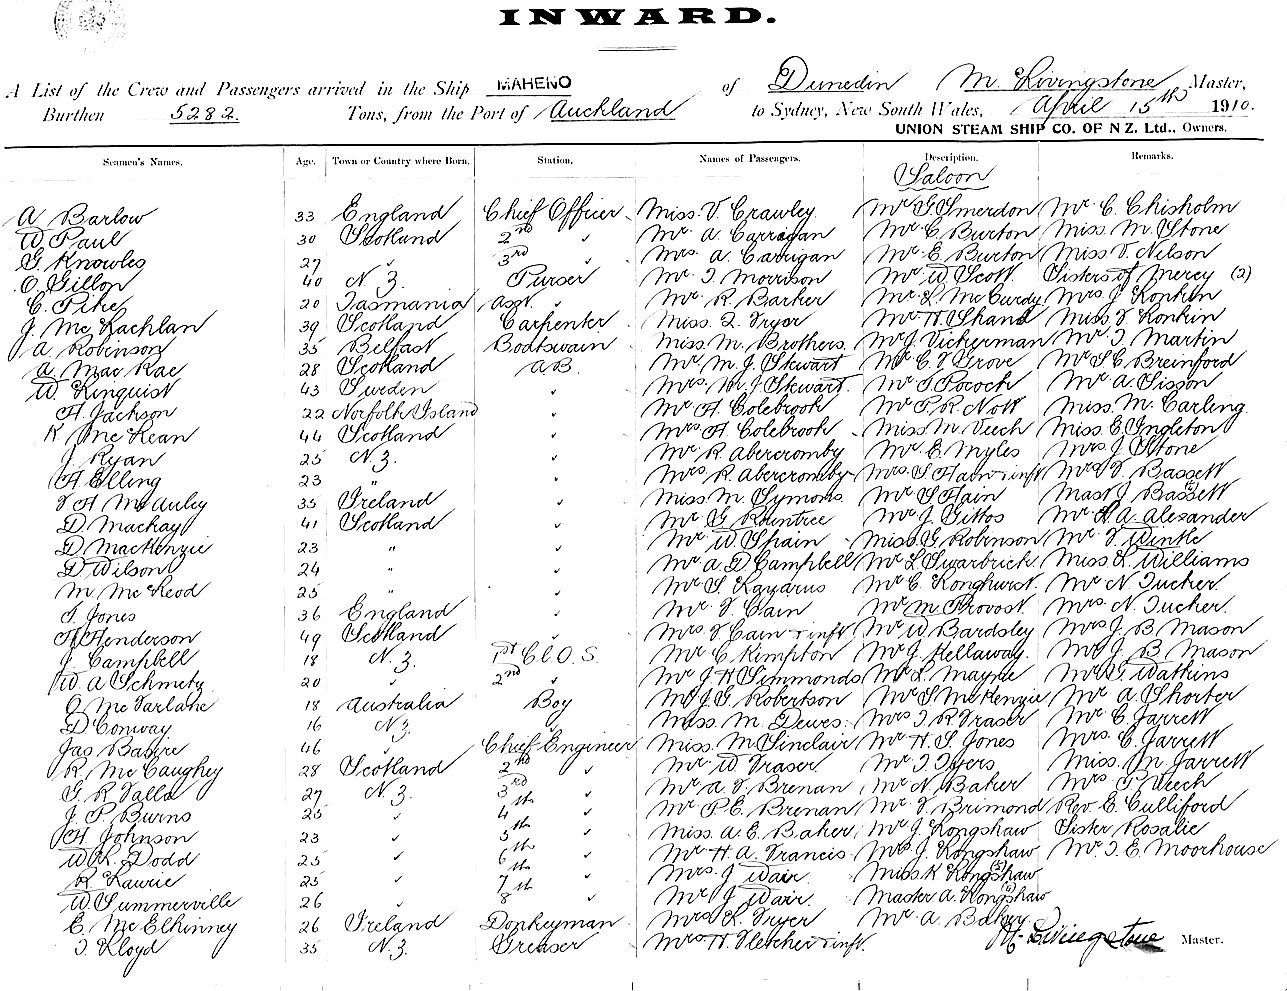 INWARD.
A List of the Crew and Passengers arrived in the Ship MAHENO of Dunedin M. Livingstone Master,
Burthen 5282. Tons, from the Port of Auckland to Sydney, New South Wales, April 15th 1910.
UNION STEAM SHIP CO. OF N Z. Ltd., Owners.
Seamen's Names. Age. Town or Country where Born. Station. Names of Passengers. Description. Remarks.
Saloon
A Barlow 33 England Chief Officer Miss. V. Crawley. Mr G Smerdon Mr. C. Chisholm
W. Paul 30 Scotland 2nd " Mr. A. Carragan Mr C Burton Miss M. Stone
G. Knowles 27 " 3rd Mrs. A. Carrigan Mr E Burton Miss V. Nilson
O. Gillon 40 N Z. Purser Mr. T. Morrison Mr W Scott Sisters of Mercy (2)
C. Pike 20 Tasmania Asst. " Mr. R. Barker Mr L McCurdy Mrs J Konkin
J. Mc Lachlan 39 Scotland Carpenter Miss. L. Fryer Mr H Shand Miss Konkin
A. Robinson 35 Belfast Boatswain Miss. M. Brothers. Mr J. Vickerman Mr J. Martin
A Mac Rae 28 Scotland A B. Mr M. J. Stewart Mr C F Grove Mr S C Breinford
W. Linquist 43 Sweden " Mrs. M. J Stewart. Mr Pocock Mr A. Sisson
H. Jackson 22 Norfolk Island " Mr H. Colebrook Mr P R Nott Miss. M. Carling.
K Mc Lean 44 Scotland " Mrs H Colebrook Miss M. Veech Miss. E. Ingleton
J. Ryan 25 N Z. " Mr R. Abercromby Mr E. Myles Mrs J Stone
H. Elling 23 " " Mrs. R. Abercromby Mrs. S Hain & inft Mrs. F. Bassett
F H McAuley 35 Ireland " Miss M. Symons. Mr S Hain Mast. J Bassett
D Mackay 41 Scotland " Mr G Rountree Mr J. Gittos Mr H. A. Alexander
D. MacKenzie 23 " " Mr W Spain Miss G Robinson Mr F. Wintle
D Wilson 24 " " Mr A. D Campbell Mr L Swarbrick. Miss L. Williams
M. Mc Leod 25 " " Mr S. Kaydrus Mr C. Longhurst. Mr N Tucker.
J. Jones 36 England " Mr. F. Cain Mr M. Provost Mrs. N. Tucker.
H Henderson 49 Scotland " Mrs. F Cain & inft Mr W Bardsley Mrs J B Mason
J. Campbell 18 N. Z. 1st Cl O. S. Mr C Kimpton Mr J. Hellaway. Mr J B Mason
W. A Schmetz 20 " 2nd " Mr J H Simmonds Mr L. Mayne Mr G Watkins
O Mc Farlane 18 Australia Boy Mr J. G. Robertson Mr S McKenzie Mr A. Shorter
D Conway 16 N Z. " Miss. M. Dewes. Mrs J. R Fraser Mr C Jarrett
Jas. Barrie 46 " Chief Engineer Miss. M Sinclair Mr H. S. Jones Mrs. C. Jarrett
R. Mc Caughey 28 Scotland 2nd " Mr. W Fraser. Mr J Tyers Miss. M. Jarrett
G R Valla 27 N Z. 3rd " Mr. A. F. Brenan Mr N. Baker Mrs P. Veech
J. P. Burns 25 " 4th " Mr P. E. Brenan Mr F Brimond Rev. E Culliford
H. Johnson 23 " 5th " Miss. A. E. Baker Mr J. Longshaw Sister Rosalie
W. R. Dodd 25 " 6th " Mr H A. Francis Mrs J. Longshaw Mr. J. E. Moorhouse
R Lawrie 25 " 7th " Mrs. J Wair. Miss K Longshaw
W Summerville 26 " 8th " Mr J. Wair. Master A. Longshaw
E. Mc Elhinney 26 Ireland Donkeyman Mrs L Fryer Mr A. Baker
J. Lloyd 35 N. Z. Greaser Mrs. H. Fletcher & inft. M. Livingstone Master.